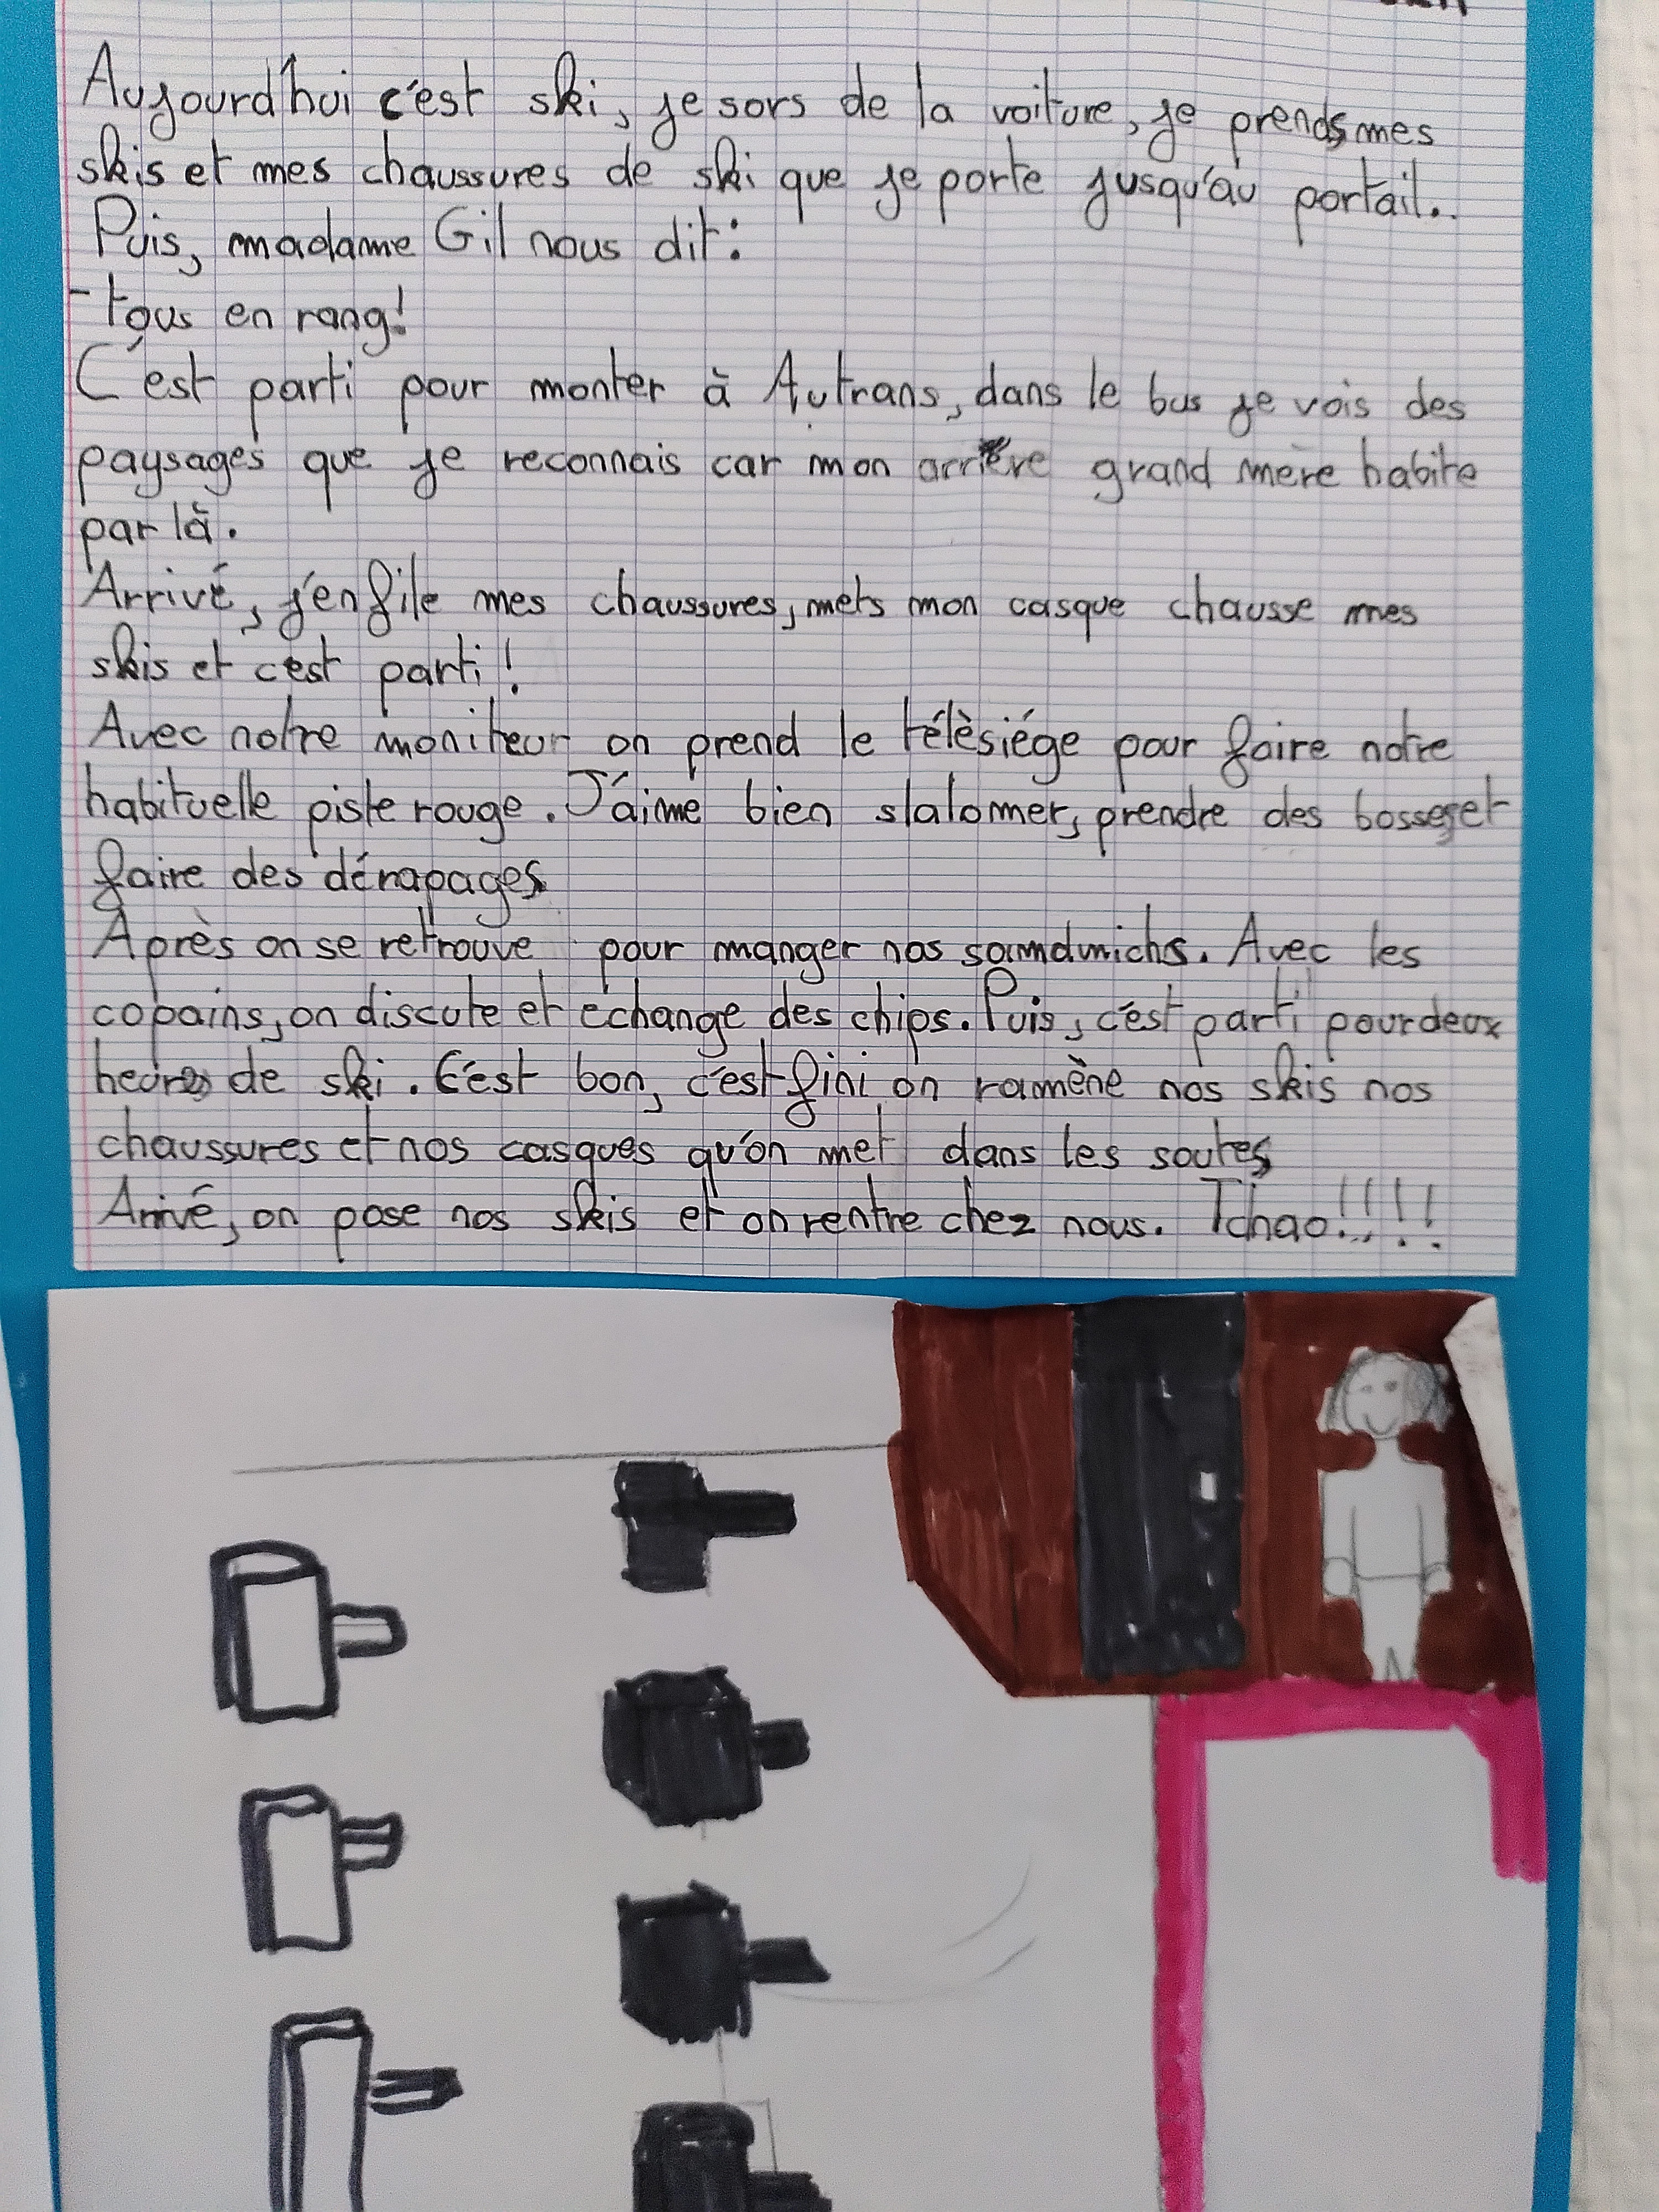 Aujourd'hui c'est ski, je sors de la voiture, je prends mes
skis et mes chaussures de ski que je porte jusqu'au portail..
Puis, madame Gil nous dit :
- tous en rang!
C'est parti pour monter à Autrans, dans le bus je vois des
paysages que je reconnais car mon arrière grand mère habite
par là.
Arrivé, j'enfile mes chaussures, mets mon casque chausse mes
skis et c'est parti !
Avec notre moniteur on prend le télèsiége pour faire notre
habituelle piste rouge. J'aime bien slalomer, prendre des bosses et
faire des dérapages
Après on se retrouve pour manger nos samdwichs. Avec les
copains, on discute et échange des chips. Puis, c'est parti pour deux
heures de ski. C'est bon, c'est fini, on ramène nos skis nos
chaussures et nos casques qu'on met dans les soutes
Arrivé, on pose nos skis et on rentre chez nous. Tchao!!!!!